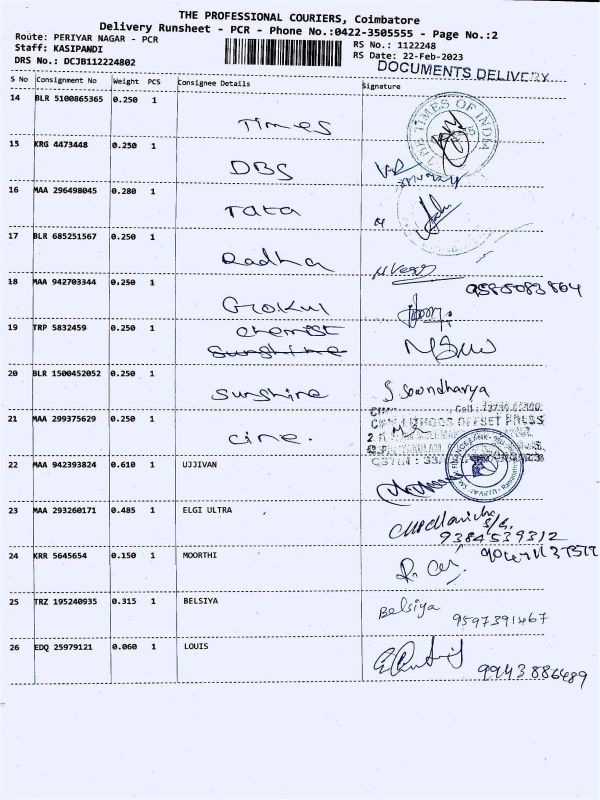 THE PROFESSIONAL COURIERS, Coimbatore
Delivery Runsheet - PCR - Phone No.:0422-3505555 - Page No.:2
Route: PERIYAR NAGAR - PCR
RS No.: 1122248
Staff: KASIPANDI
RS Date: 22-Feb-2023
DRS No.: DCJB112224802
DOCUMENTS DELIVERY
S No Consignment No Weight PCS Consignee Details Signature
14 BLR 5100865365 0.250 1 Times
THE TIMES OF INDIA
15 KRG 4473448 0.250 1 DBS
16 MAA 296498045 0.280 1 Tata
17 BLR 685251567 0.250 1 Radha
18 MAA 942703344 0.250 1 Gokul 9585083864
19 TRP 5832459 0.250 1 chemist
sunshine
20 BLR 1500452052 0.250 1 sunshine S Soundharya
21 MAA 299375629 0.250 1 cine.
OFFSET PRESS
22 MAA 942393824 0.610 1 UJJIVAN
23 MAA 293260171 0.485 1 ELGI ULTRA
9384539312
24 KRR 5645654 0.150 1 MOORTHI
25 TRZ 195240935 0.315 1 BELSIYA Belsiya 9597391467
26 EDQ 25979121 0.060 1 LOUIS 9943886489